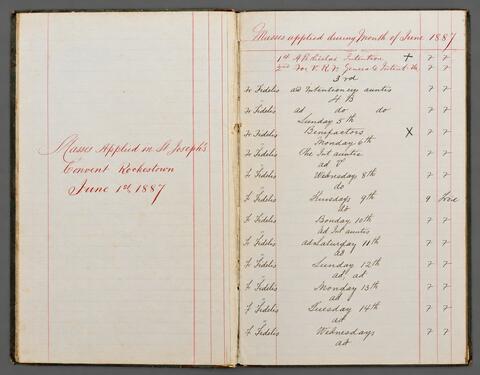 Masses Applied in St Joseph's
Convent Rochestown
June 1st 1887
Masses applied during Month of June 1887
1st Intention + 7 7
2nd For V. R. F. 7 7
3rd
Fr Fidelis ad Intentionem 7 7
4 B
Fr Fidelis ad do do 7 7
Sunday 5th
Fr Fidelis Benefactors X 7 7
Monday 6th
Fr Fidelis Int 7 7
ad
Fr Fidelis Wednesday 8th 7 7
do
Fr Fidelis Thursday 9th 9
Fr Fidelis Bonday 10th 7 7
ad Int
Fr Fidelis ad Saturday 11th 7 7
ad
Fr Fidelis Sunday 12th 7 7
ad ad
Fr Fidelis Monday 13th 7 7
ad
Fr Fidelis Tuesday 14th 7 7
ad
Fr Fidelis Wednesdays 7 7
ad